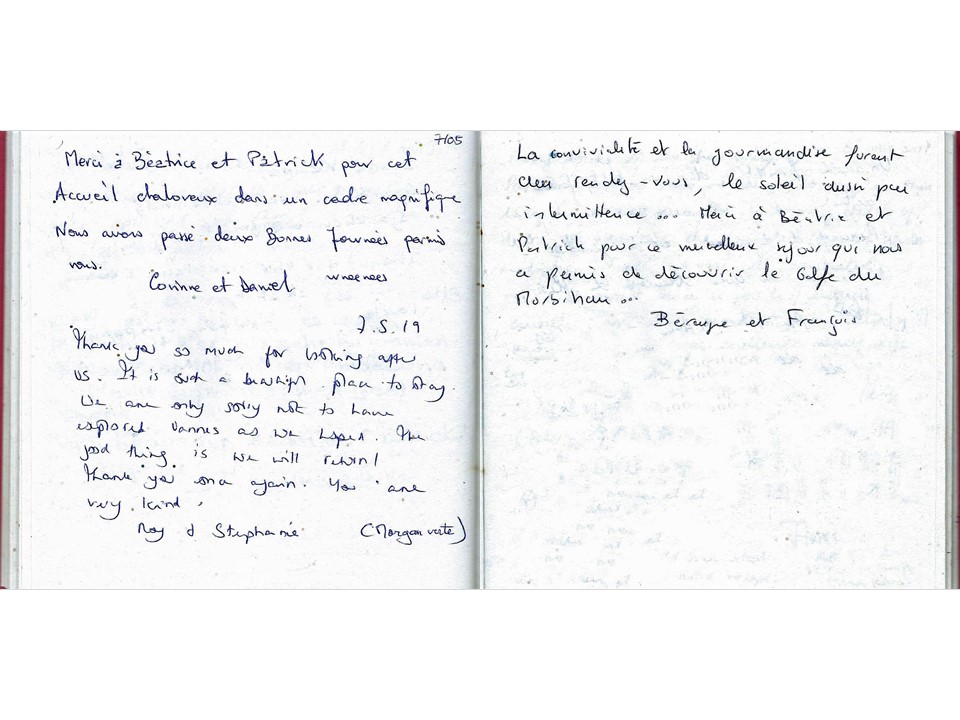 7/05
Merci à Béatrice et Patrick pour cet
Accueil chaloureux dans un cadre magnifique
Nous avons passé deux Bonnes Journées parmis
vous.
Corinne et Daniel
7.5.19
Thank you so much for looking after
us. It is such a beautiful place to stay.
We are only sorry not to have
explored Vannes as we hoped. The
good thing is we will return!
Thank you once again. You are
very kind.
Roy & Stephanie (Morgan verte)
La convivialité et la gourmandise furent
des rendez-vous, le soleil aussi par
intermittence... Merci à Béatrix et
Patrick pour ce merveilleux séjour qui nous
a permis de découvrir le Golfe du
Morbihan...
et François